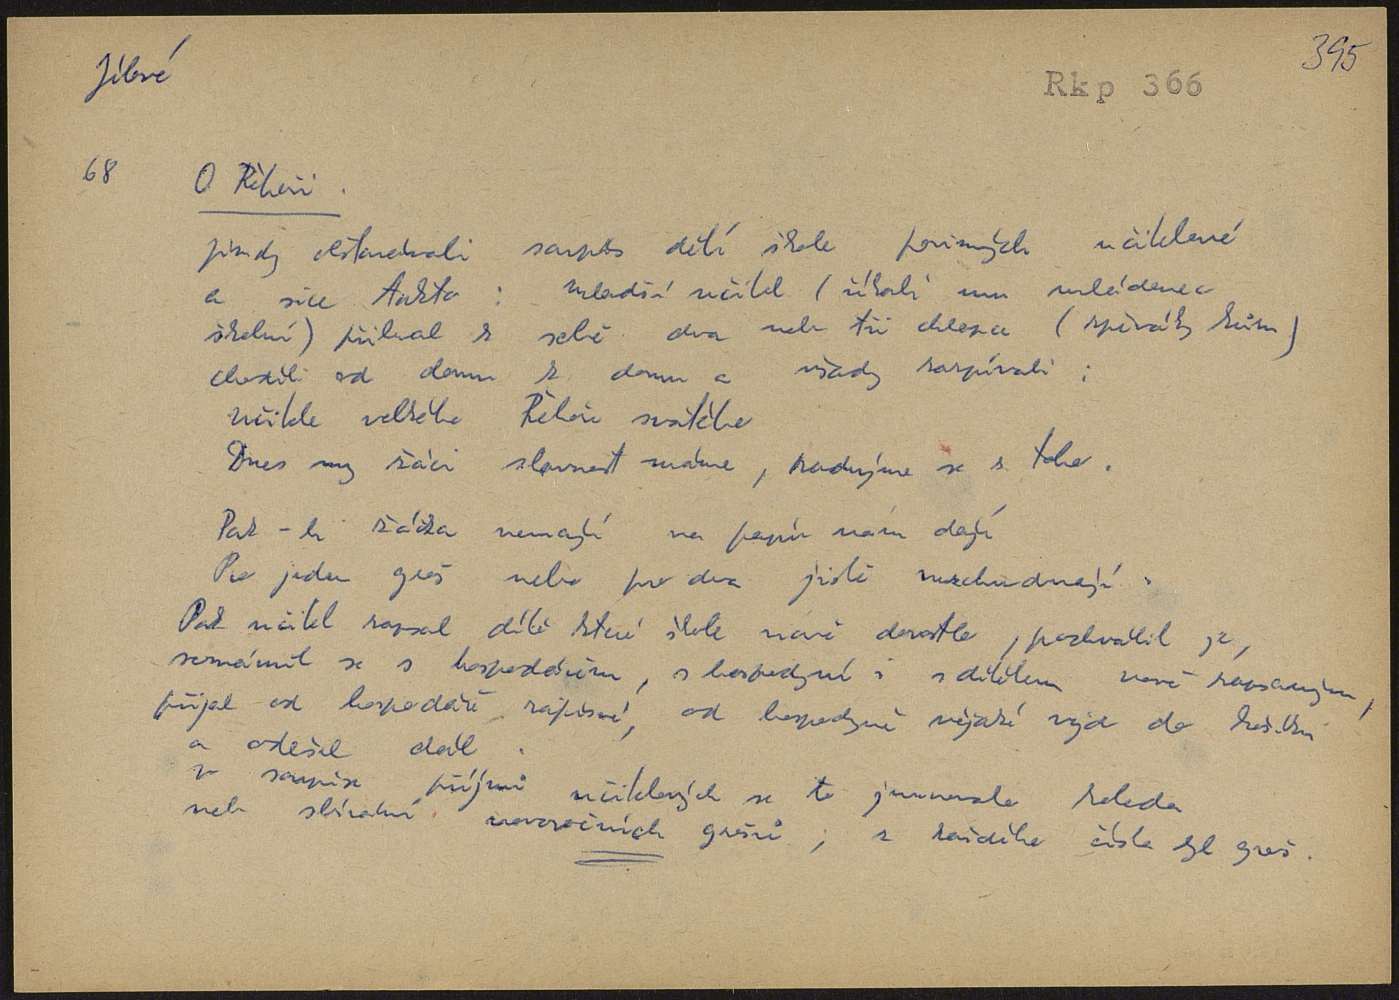 Jílové
395
Rkp 366
68 O Řehoři.
jindy obstarávali soupis dětí škole povinných učitelové
a sice takto: mladší učitel (říkali mu mládenec
školní) přibral k sobě dva neb tři chlapce (zpěváky kůru)
chodili od domu k domu a všady zazpívali:
učitele velkého Řehoře svatého
Dnes my žáci slavnost máme, radujme se z toho.
Pak-li žáčka nemají na papír nám dají
Pro jeden groš nebo pro dva jistě nezchudnají.
Pak učitel zapsal dítě které škole nově dorostlo, pochválil je,
seznámil se s hospodářem, s hospodyní i s dítětem nově zapsaným,
přijal od hospodáře zápisné, od hospodyně nějaké vejce do košíku
a odešel dál.
v soupise příjmů učitelových se to jmenovalo koleda
neb sbírání novoročních grošů; z každého čísla byl groš.